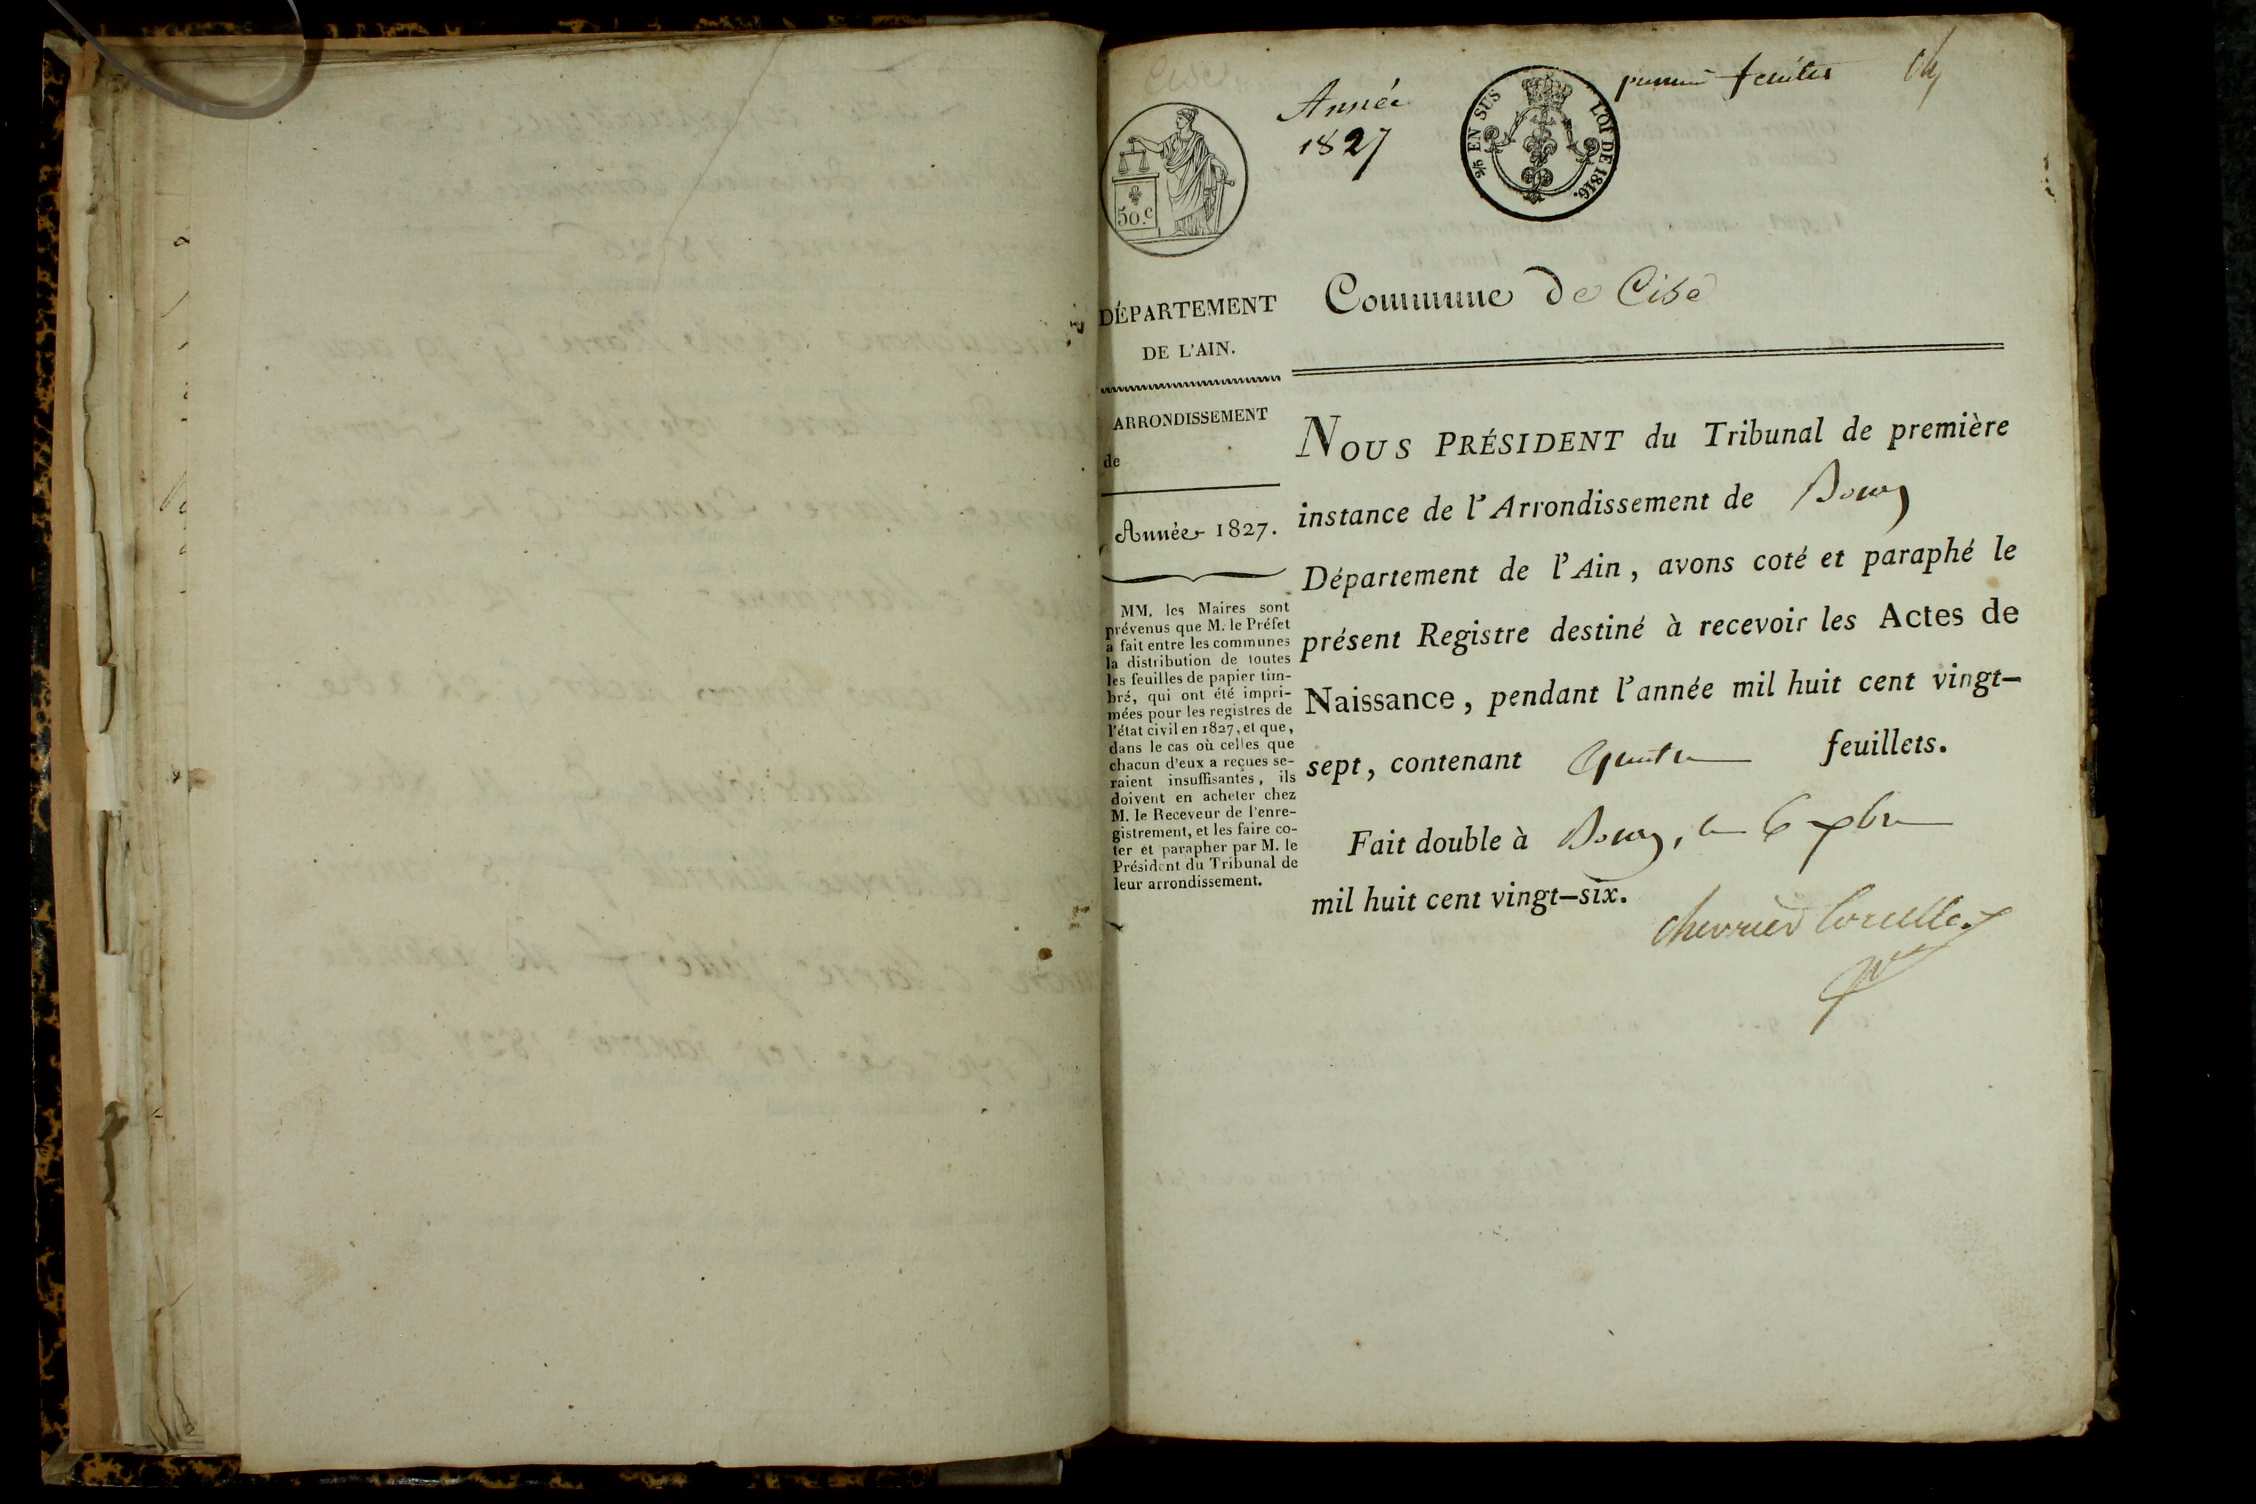 Cise
Année
1827
premier feuillet
50.c
EN SUS
LOI DE 1816.
Commune de Cise
DÉPARTEMENT
DE L'AIN.
ARRONDISSEMENT
de
Année 1827.
MM. les Maires sont
prévenus que M. le Préfet
a fait entre les communes
la distribution de toutes
les feuilles de papier tim-
bré, qui ont été impri-
mées pour les registres de
l'état civil en 1827, et que,
dans le cas où celles que
chacun d'eux a reçues se-
raient insuffisantes, ils
doivent en acheter chez
M. le Receveur de l'enre-
gistrement, et les faire co-
ter et parapher par M. le
Président du Tribunal de
leur arrondissement.
NOUS PRÉSIDENT du Tribunal de première
instance de l'Arrondissement de Bourg
Département de l'Ain, avons coté et paraphé le
présent Registre destiné à recevoir les Actes de
Naissance, pendant l'année mil huit cent vingt-
sept, contenant quatre feuillets.
Fait double à Bourg, le 6 xbre
mil huit cent vingt-six.
Chevrier Corcelles